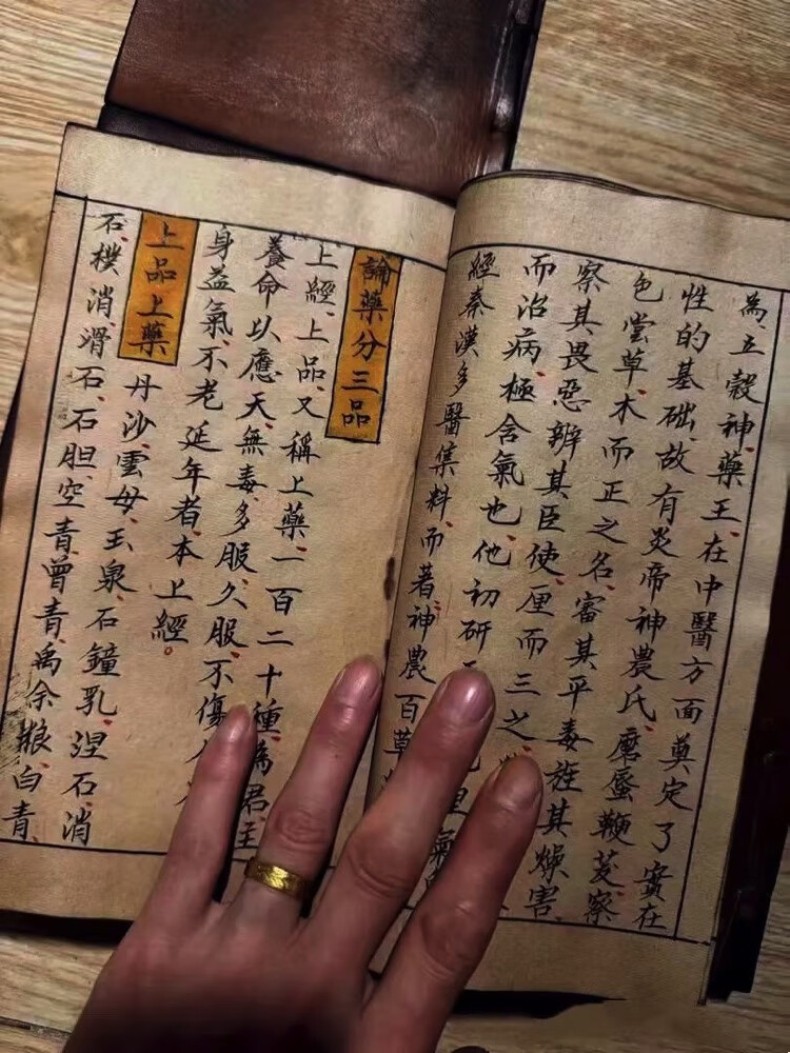 為五穀神、藥王、在中醫方面奠定了實在
性的基础、故有炎帝神農氏、磨蜃鞭茇、察
色嘗草、木而正之名、審其平毒旌其燥害、
察其畏惡、辨其臣使、厘而三之、
而治病、極含氣也、他初研
經秦漢多醫集料而著、神農百草
論藥分三品
上經、上品、又稱上藥、一百二十種、為君、主
養命以應天、無毒、多服、久服、不傷人
身益氣、不老延年者、本上經。
上品上藥
丹沙、雲母、玉泉、石鐘乳、涅石、消
石、樸消、滑石、石胆、空青、曾青、禹余粮、白青、